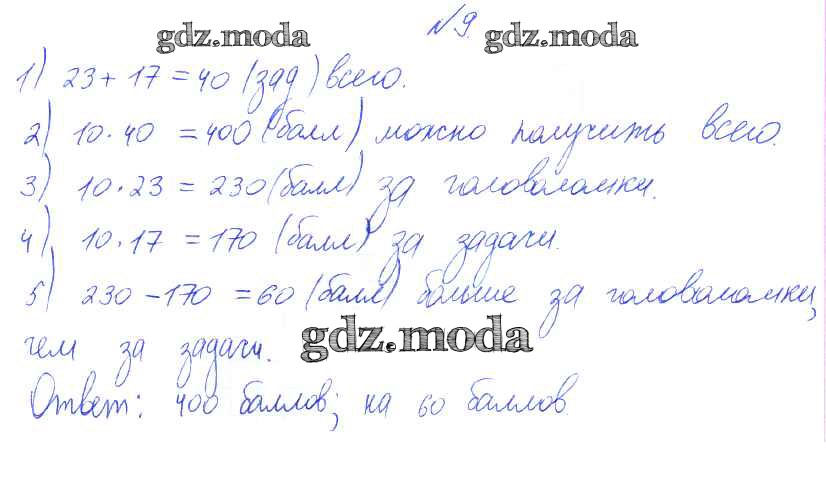 №9.
gdz.moda gdz.moda
1) 23 + 17 = 40 (зад) всего.
2) 10 · 40 = 400 (балл) можно получить всего.
3) 10 · 23 = 230 (балл) за головоломки.
4) 10 · 17 = 170 (балл) за задачи.
5) 230 – 170 = 60 (балл) больше за головоломки,
чем за задачи.
gdz.moda
Ответ: 400 баллов; на 60 баллов.